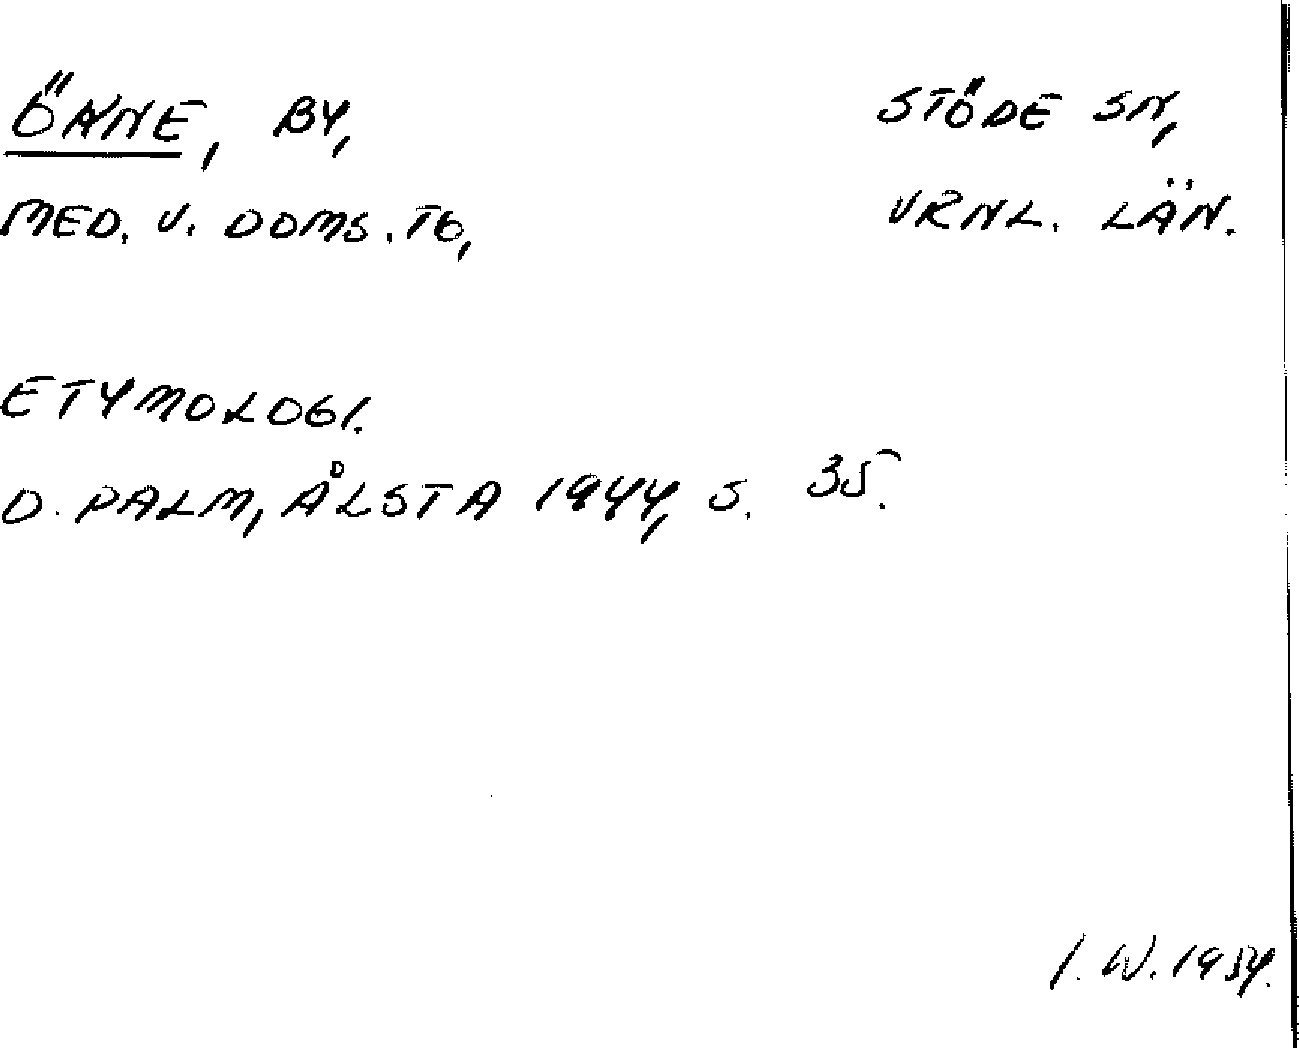 ÖNNE, BY, STÖDE SN,
MED. V. DOMS. TG, VRNL. LÄN.
ETYMOLOGI.
D. PALM, ÅLSTA 1944, S. 35.
I. W. 1954.